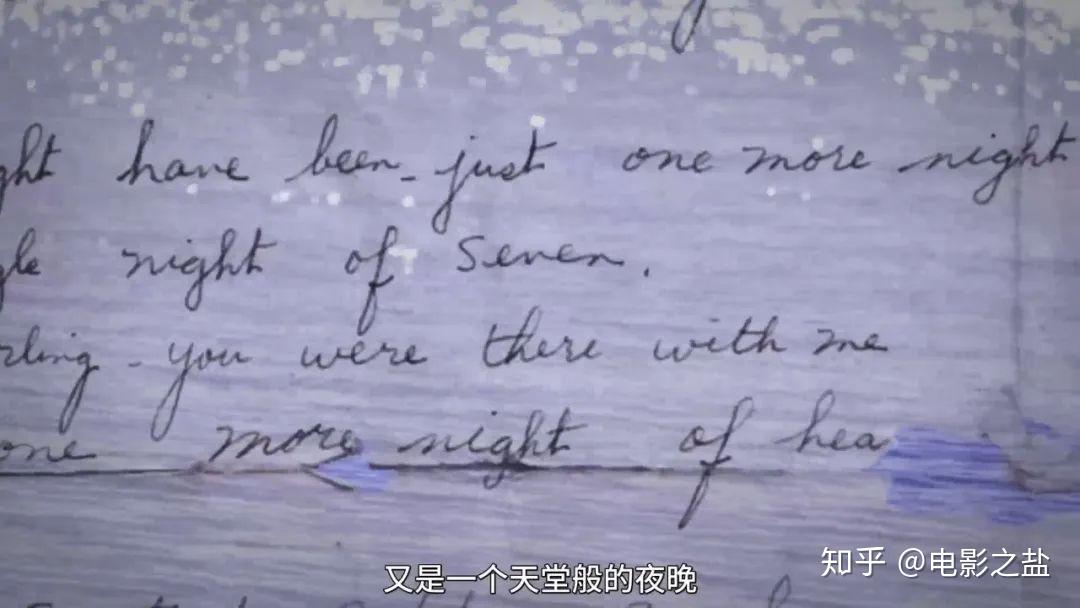 ght have been - just one more night
gle night of seven.
rling - you were there with me
one more night of hea
又是一个天堂般的夜晚
知乎 @电影之盐